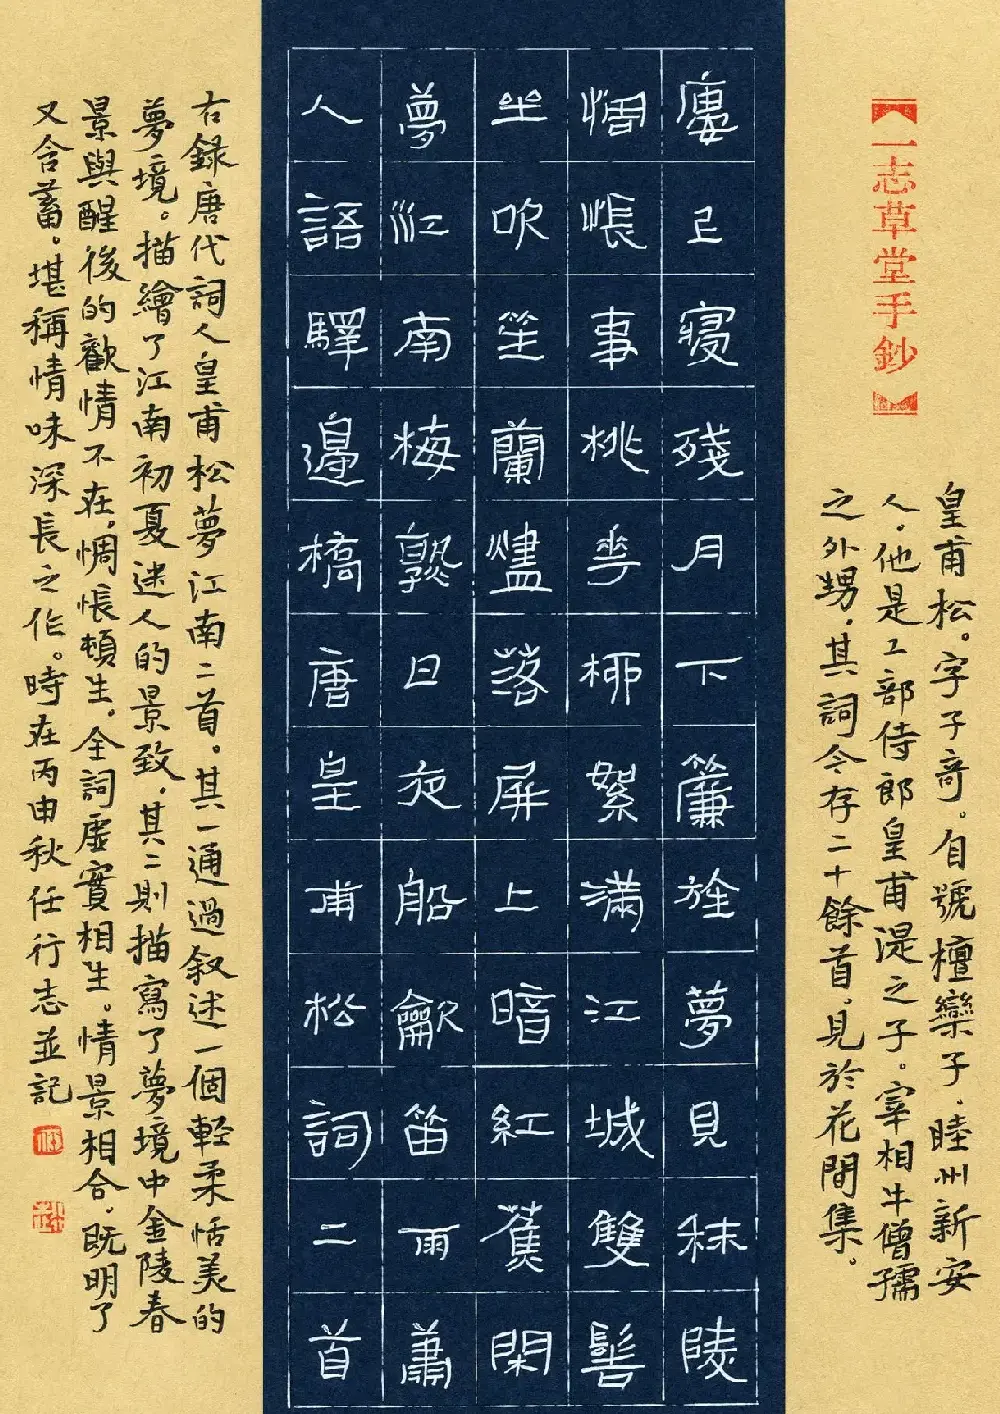 【一志草堂手鈔】
皇甫松。字子奇。自號檀欒子，睦州新安
人，他是工部侍郎皇甫湜之子。宰相牛僧孺
之外甥，其詞今存二十餘首，見於花間集。
廔上寢殘月下簾旌夢見秣陵
惆悵事桃華柳絮滿江城雙髻
坐吹笙蘭燼落屏上暗紅蕉閑
夢江南梅熟日夜船龡笛雨蕭
人語驛邊橋唐皇甫松詞二首
右錄唐代詞人皇甫松夢江南二首。其一通過敘述一個輕柔恬美的
夢境。描繪了江南初夏迷人的景致，其二則描寫了夢境中金陵春
景與醒後的歡情不在，惆悵頓生，全詞虛實相生。情景相合，既明了
又含蓄。堪稱情味深長之作。時在丙申秋任行志並記